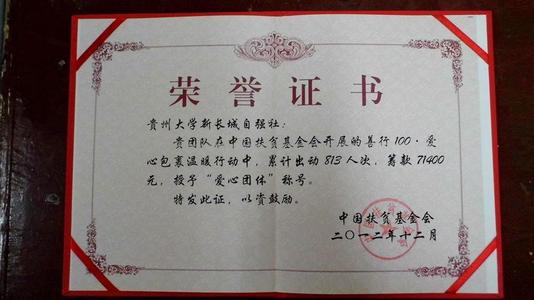 荣誉证书
贵州大学新长城自强社：
贵团队在中国扶贫基金会开展的善行100·爱
心包裹温暖行动中，累计出动813人次，筹款71400
元，授予“爱心团体”称号。
特发此证，以资鼓励。
中国扶贫基金会
二〇一二年十二月